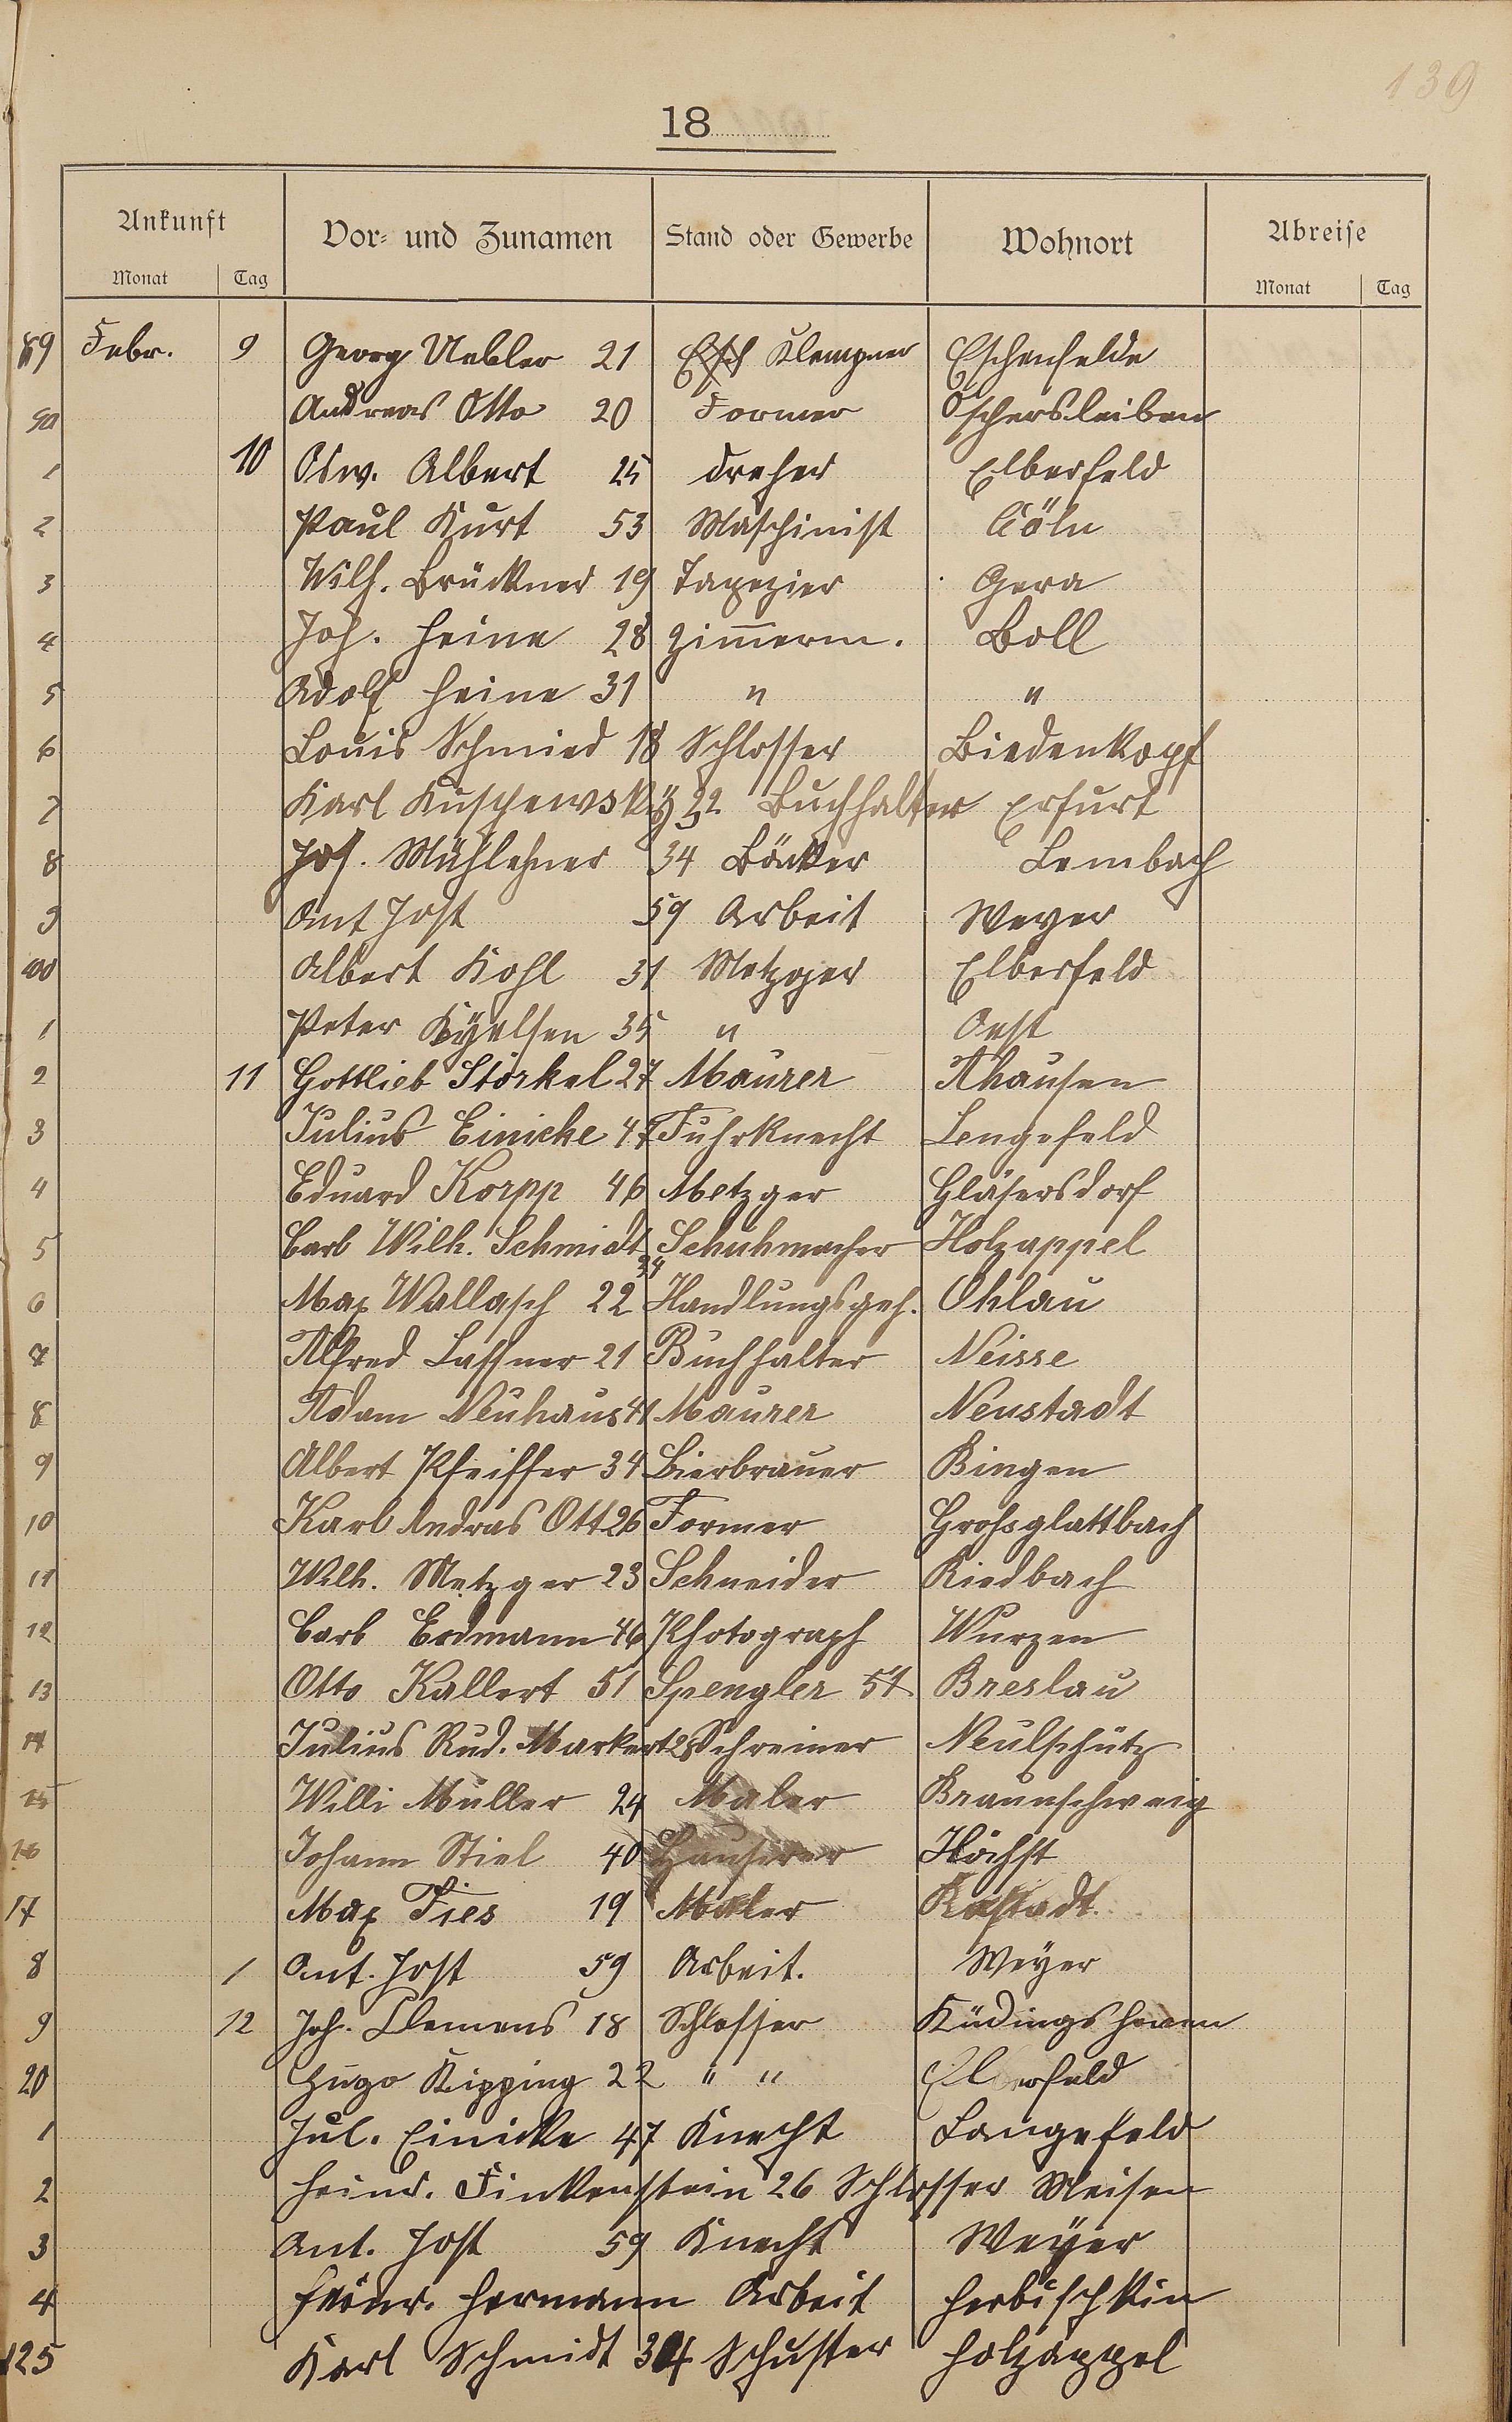 139
18
Ankunft Vor- und Zunamen Stand oder Gewerbe Wohnort Abreise
Monat Tag Monat Tag
89 Febr. 9 Georg Uebler 21 Klempner Eschenfelde
90 Andreas Otto 20 Former Oschersleiben
1 10 Osw. Albert 25 Dreher Elberfeld
2 Paul Kurt 53 Maschinist Cöln
3 Wilh. Brückner 19 Tapezier Gera
4 Joh. Heine 28 Zimmerm. Boll
5 Adolf Heine 31 " "
6 Louis Schmied 18 Schlosser Biedenkopf
7 Karl Kuschewsky 22 Buchhalter Erfurt
8 Jos. Mühlehner 34 Bäcker Lembach
9 Ant Jost 59 Arbeit Weyer
100 Albert Kohl 31 Metzger Elberfeld
1 Peter 35 " Oest
2 11 Gottlieb Störkel 27 Maurer Ahausen
3 Julius Einicke 47 Fuhrknecht Lengefeld
4 Eduard Korpp 46 Metzger Gläsersdorf
5 Carl Wilh. Schmidt 34 Schuhmacher Holzappel
6 Max Wallasch 22 Handlungsgeh. Ohlau
7 Alfred Laffner 21 Buchhalter Neisse
8 Adam Neuhaus 41 Maurer Neustadt
9 Albert Pfeiffer 34 Bierbrauer Bingen
10 Karl Andras Ott 26 Former Großglattbach
11 Wilh. Metzger 23 Schneider Riedbach
12 Carl Erdmann 46 Photograph Wurzen
13 Otto Kallert 51 Spengler 51 Breslau
14 Julius Rud. Markert 28 Schreiner Neulschütz
15 Willi Müller 24 Maler Braunschweig
16 Johann Stiel 40 Hausirer Höchst
17 Max Fies 19 Maler Rastadt
8 1 Ant. Jost 59 Arbeit. Weyer
9 12 Joh. Clemens 18 Schlosser
20 Hugo Kipping 22 " " Elberfeld
1 Jul. Einicke 47 Knecht Langefeld
2 Heinr. Finkenstein 26 Schlosser Meisen
3 Ant. Jost 59 Knecht Weyer
4 Heinr. Hermann Arbeit
125 Karl Schmidt 34 Schuster Holzappel